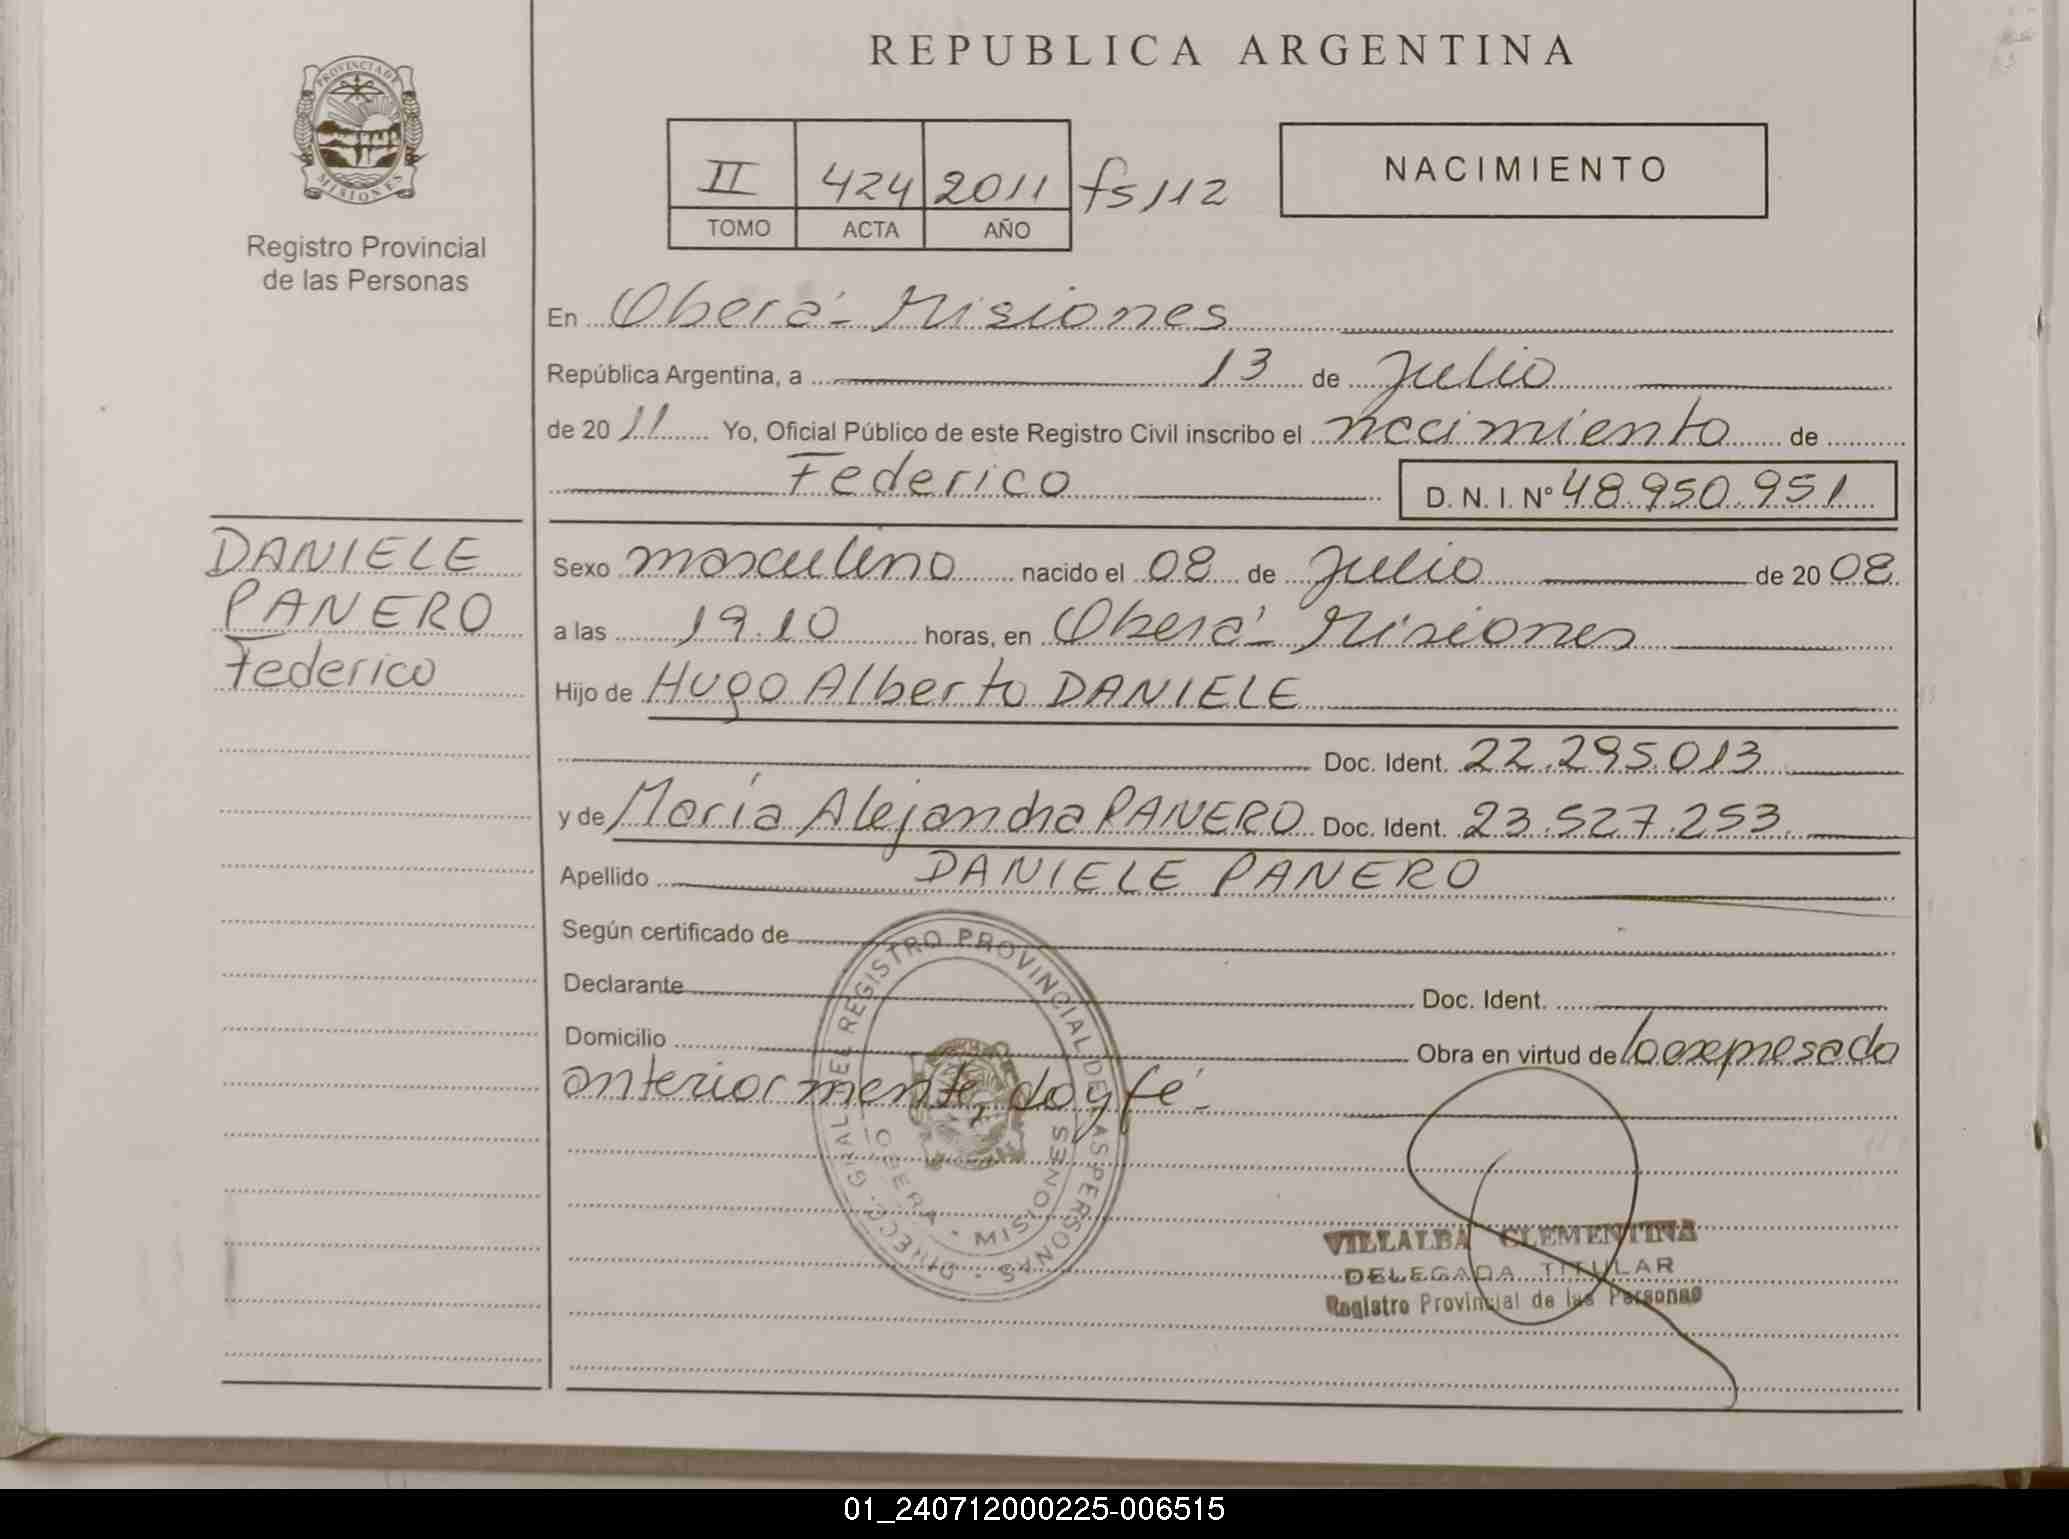 REPUBLICA ARGENTINA
PROVINCIA DE MISIONES
Registro Provincial
de las Personas
II 424 2011 fs 112
TOMO ACTA AÑO
NACIMIENTO
En Oberá- Misiones
República Argentina, a 13 de Julio
de 2011 Yo, Oficial Público de este Registro Civil inscribo el nacimiento de
Federico D. N. I. N° 48.950.951
DANIELE
PANERO
Federico
Sexo masculino nacido el 08 de Julio de 2008
a las 19.10 horas, en Oberá- Misiones
Hijo de Hugo Alberto DANIELE
Doc. Ident. 22.295.013
y de María Alejandra PANERO Doc. Ident. 23.527.253
Apellido DANIELE PANERO
Según certificado de
Declarante Doc. Ident.
Domicilio Obra en virtud de lo expresado
anteriormente, doy fé-
DIRECC. GRAL. DEL REGISTRO PROVINCIAL DE LAS PERSONAS
OBERA - MISIONES
VILLALBA CLEMENTINA
DELEGADA TITULAR
Registro Provincial de las Personas
01_240712000225-006515